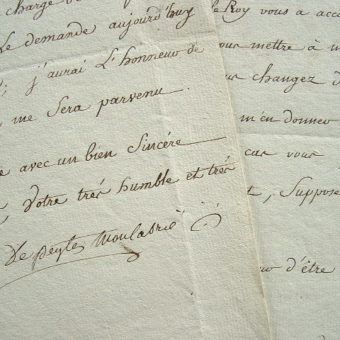 charge
Le demande aujourd'huy
; j'aurai L'honneur de
me Sera parvenu.
avec un bien Sincère
Votre trés humble et trés
De
le Roy vous a acc
vous mettre à m
vous changez d
m'en donner
cas vous
, Suppose
d'être